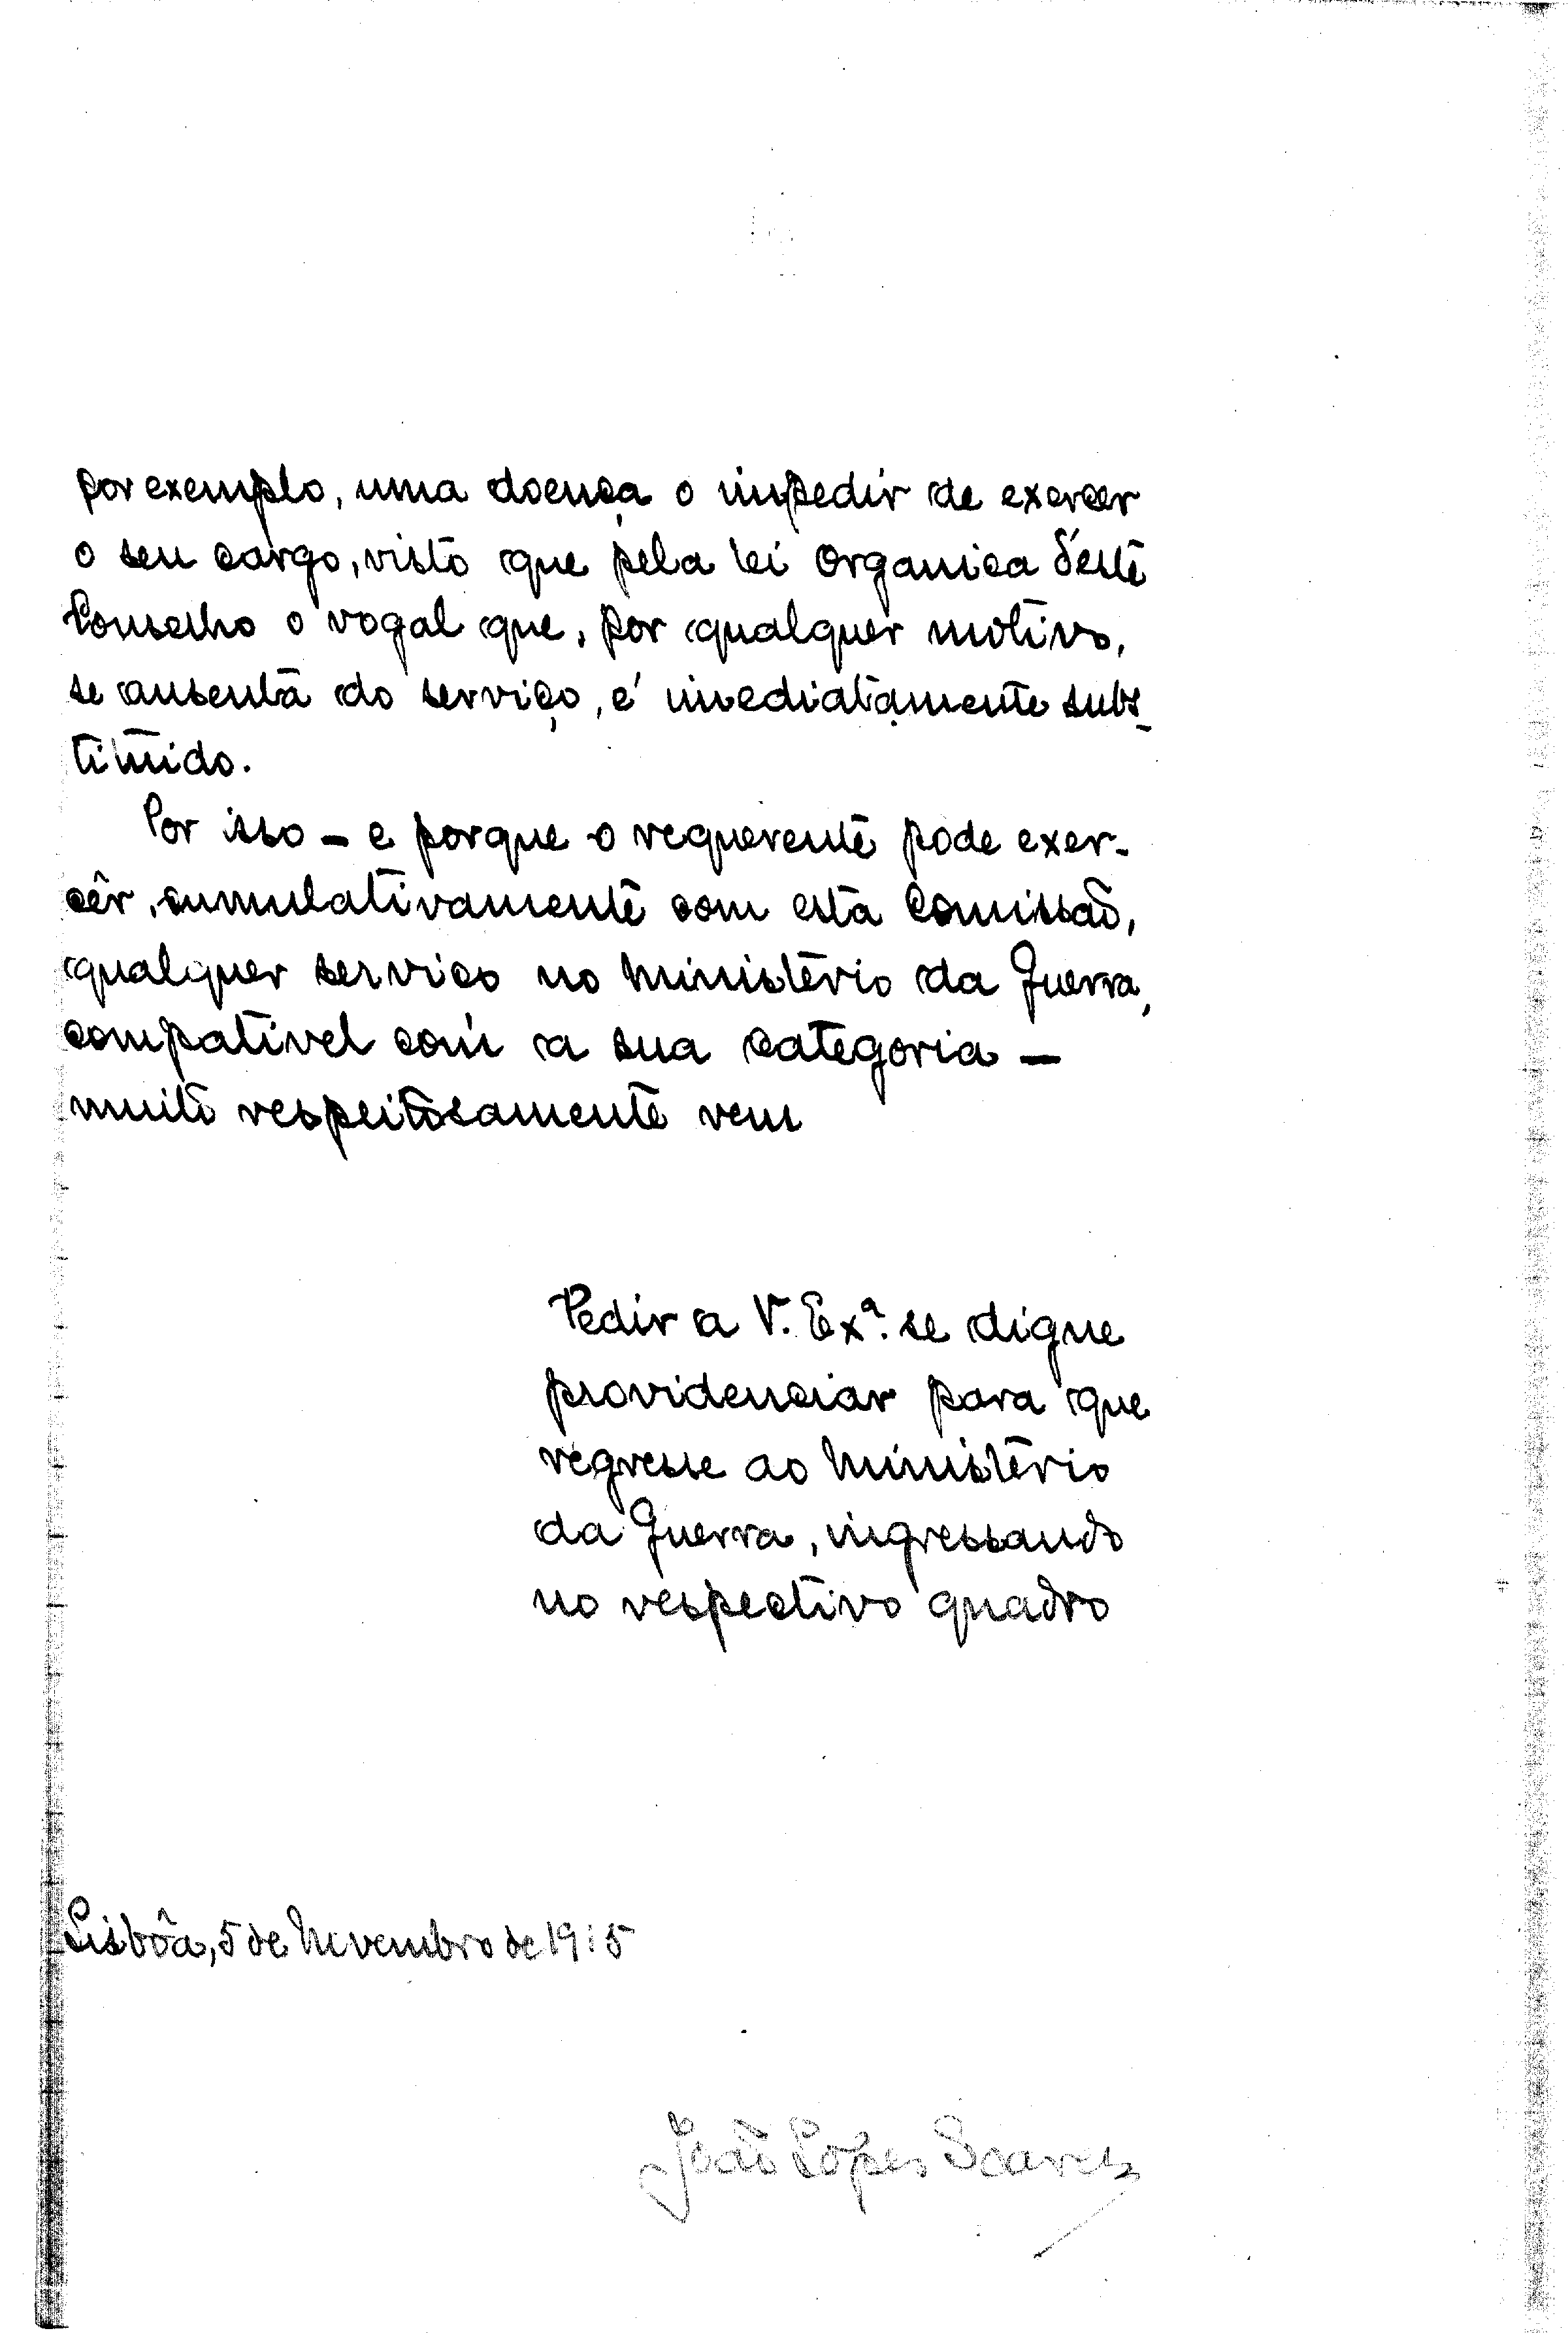 por exemplo, uma doença o impedir de exercer
o seu cargo, visto que pela lei organica d'este
Conselho o vogal que, por qualquer motivo,
se ausenta do serviço, é imediatamente subs-
tituido.
Por isso — e porque o requerente pode exer-
cêr, cumulativamente com esta comissão,
qualquer serviço no Ministério da Guerra,
compativel com a sua categoria —
muito respeitosamente vem
Pedir a V. Exª. se digne
providenciar para que
regresse ao Ministério
da Guerra, ingressando
no respectivo quadro
Lisbôa, 5 de Novembro de 1915
João Lopes Soares